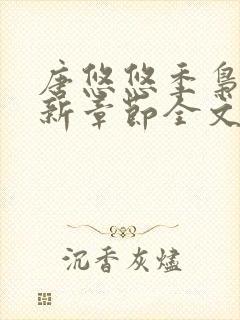 唐悠悠季枭
新章节全文
沉香灰燼